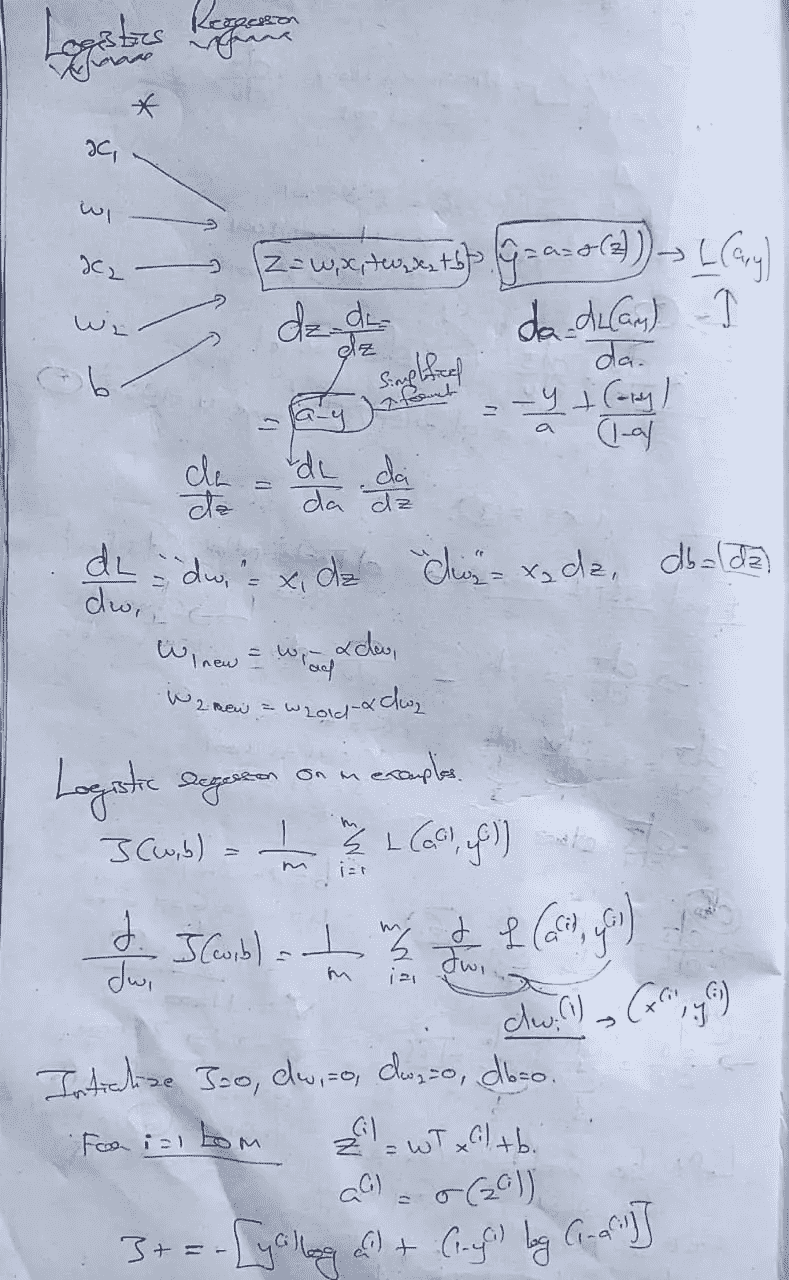 Logistics Regression
*
x₁
w₁
x₂
w₂
b
z = w₁x₁ + w₂x₂ + b → ŷ = a = σ(z)) → L(a,y)
dz = dL/dz = da = dL(a,y)/da. ↑
= a-y simplified = -y/a + (1-y)/(1-a)
dL/dz = dL/da . da/dz
dL/dw₁ = "dw₁" = x₁ dz "dw₂" = x₂ dz, db = dz
w₁ new = w₁ - α dw₁
w₂ new = w₂ old - α dw₂
Logistic regression on m examples.
J(w,b) = 1/m Σ_{i=1}^{m} L(a⁽ⁱ⁾, y⁽ⁱ⁾)
d/dw₁ J(w,b) = 1/m Σ_{i=1}^{m} d/dw₁ L(a⁽ⁱ⁾, y⁽ⁱ⁾)
dw₁⁽ⁱ⁾ → (x⁽ⁱ⁾, y⁽ⁱ⁾)
Initialize J=0, dw₁=0, dw₂=0, db=0.
For i=1 to m z⁽ⁱ⁾ = wT x⁽ⁱ⁾ + b.
a⁽ⁱ⁾ = σ(z⁽ⁱ⁾)
J + = -[y⁽ⁱ⁾ log a⁽ⁱ⁾ + (1-y⁽ⁱ⁾) log (1-a⁽ⁱ⁾)]